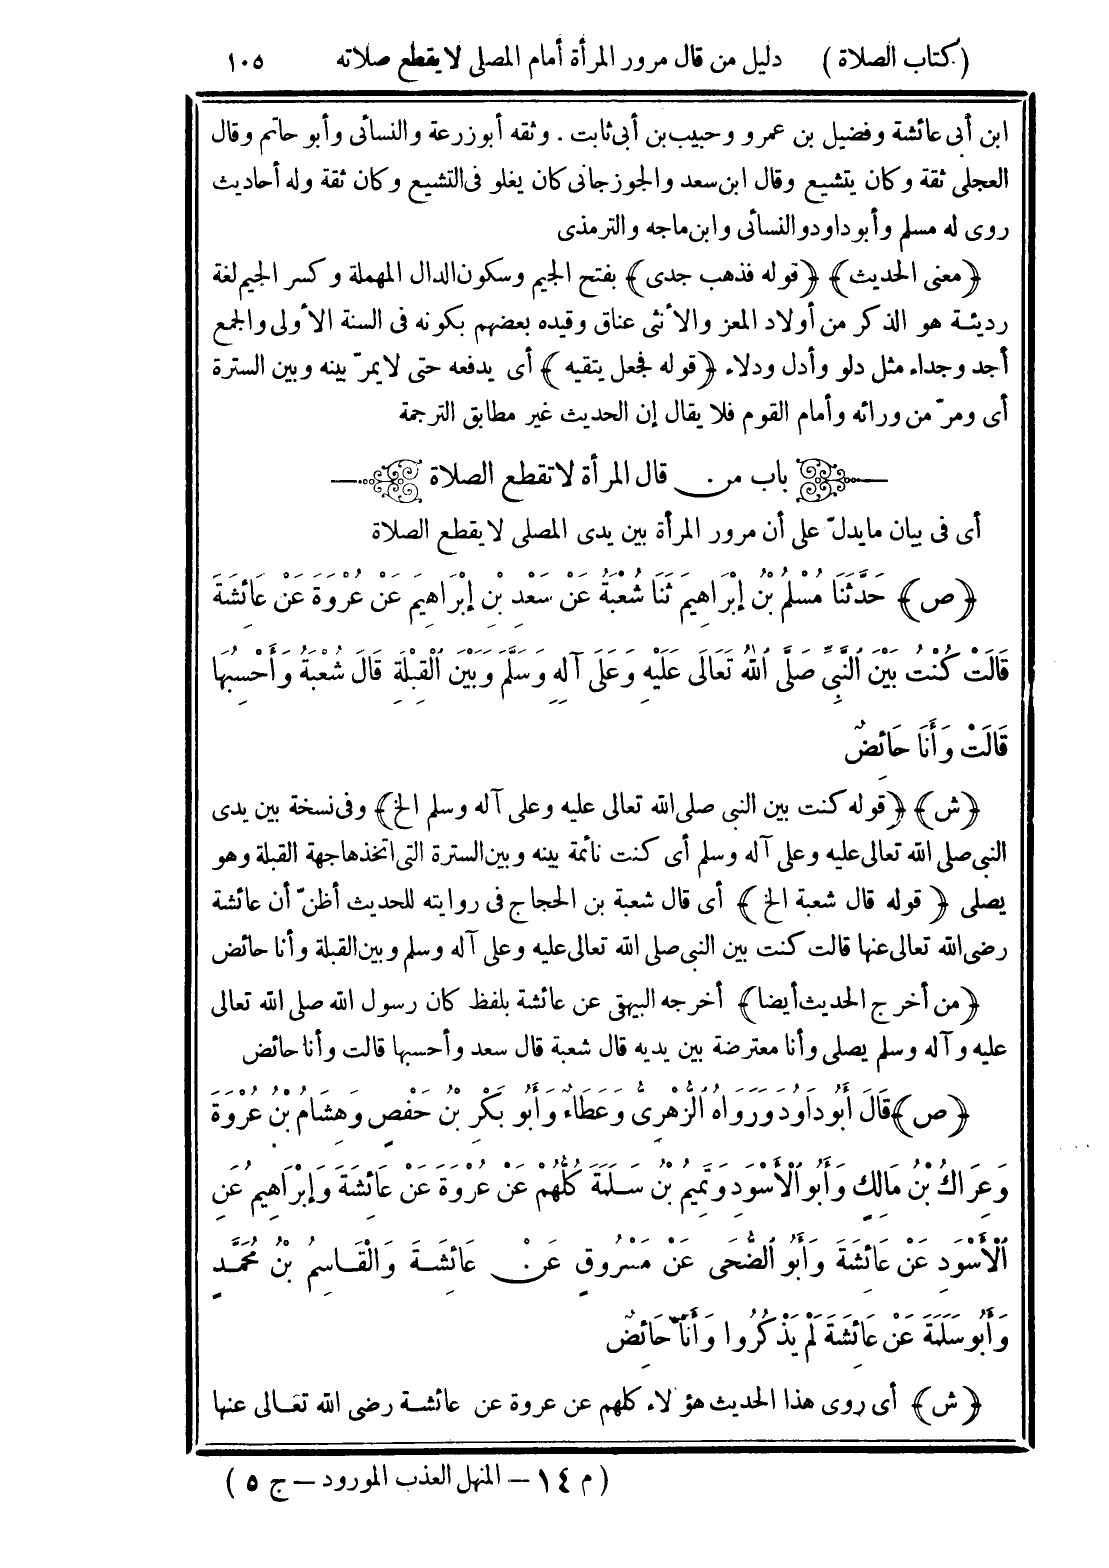 (كتاب الصلاة) دليل من قال مرور المرأة أمام المصلى لا يقطع صلاته ١٠٥
ابن أبى عائشة وفضيل بن عمرو وحبيب بن أبى ثابت . وثقه أبو زرعة والنسائى وأبو حاتم وقال
العجلى ثقة وكان يتشيع وقال ابن سعد والجوزجانى كان يغلو فى التشيع وكان ثقة وله أحاديث
روى له مسلم وأبو داود والنسائى وابن ماجه والترمذى
﴿معنى الحديث﴾ ﴿قوله فذهب جدى﴾ بفتح الجيم وسكون الدال المهملة وكسر الجيم لغة
رديئة هو الذكر من أولاد المعز والأنثى عناق وقيده بعضهم بكونه فى السنة الأولى والجمع
أجد وجداء مثل دلو وأدل ودلاء ﴿قوله فجعل يتقيه﴾ أى يدفعه حتى لا يمرّ بينه وبين السترة
أى ومرّ من ورائه وأمام القوم فلا يقال إن الحديث غير مطابق الترجمة
باب من قال المرأة لا تقطع الصلاة
أى فى بيان ما يدلّ على أن مرور المرأة بين يدى المصلى لا يقطع الصلاة
﴿ص﴾ حَدَّثَنَا مُسْلِمُ بْنُ إِبْرَاهِيمَ ثَنَا شُعْبَةُ عَنْ سَعْدِ بْنِ إِبْرَاهِيمَ عَنْ عُرْوَةَ عَنْ عَائِشَةَ
قَالَتْ كُنْتُ بَيْنَ النَّبِيِّ صَلَّى اللهُ تَعَالَى عَلَيْهِ وَعَلَى آلِهِ وَسَلَّمَ وَبَيْنَ الْقِبْلَةِ قَالَ شُعْبَةُ وَأَحْسِبُهَا
قَالَتْ وَأَنَا حَائِضٌ
﴿ش﴾ ﴿قوله كنت بين النبى صلى الله تعالى عليه وعلى آله وسلم الخ﴾ وفى نسخة بين يدى
النبى صلى الله تعالى عليه وعلى آله وسلم أى كنت نائمة بينه وبين السترة التى اتخذها جهة القبلة وهو
يصلى ﴿قوله قال شعبة الخ﴾ أى قال شعبة بن الحجاج فى روايته للحديث أظنّ أن عائشة
رضى الله تعالى عنها قالت كنت بين النبى صلى الله تعالى عليه وعلى آله وسلم وبين القبلة وأنا حائض
﴿من أخرج الحديث أيضا﴾ أخرجه البيهقى عن عائشة بلفظ كان رسول الله صلى الله تعالى
عليه وآله وسلم يصلى وأنا معترضة بين يديه قال شعبة قال سعد وأحسبها قالت وأنا حائض
﴿ص﴾ قَالَ أَبُو دَاوُدَ وَرَوَاهُ الزُّهْرِىُّ وَعَطَاءٌ وَأَبُو بَكْرِ بْنُ حَفْصٍ وَهِشَامُ بْنُ عُرْوَةَ
وَعِرَاكُ بْنُ مَالِكٍ وَأَبُو الْأَسْوَدِ وَتَمِيمُ بْنُ سَلَمَةَ كُلُّهُمْ عَنْ عُرْوَةَ عَنْ عَائِشَةَ وَإِبْرَاهِيمُ عَنِ
الْأَسْوَدِ عَنْ عَائِشَةَ وَأَبُو الضُّحَى عَنْ مَسْرُوقٍ عَنْ عَائِشَةَ وَالْقَاسِمُ بْنُ مُحَمَّدٍ
وَأَبُو سَلَمَةَ عَنْ عَائِشَةَ لَمْ يَذْكُرُوا وَأَنَا حَائِضٌ
﴿ش﴾ أى روى هذا الحديث هؤلاء كلهم عن عروة عن عائشة رضى الله تعالى عنها
(م ١٤ – المنهل العذب المورود – ج ٥)